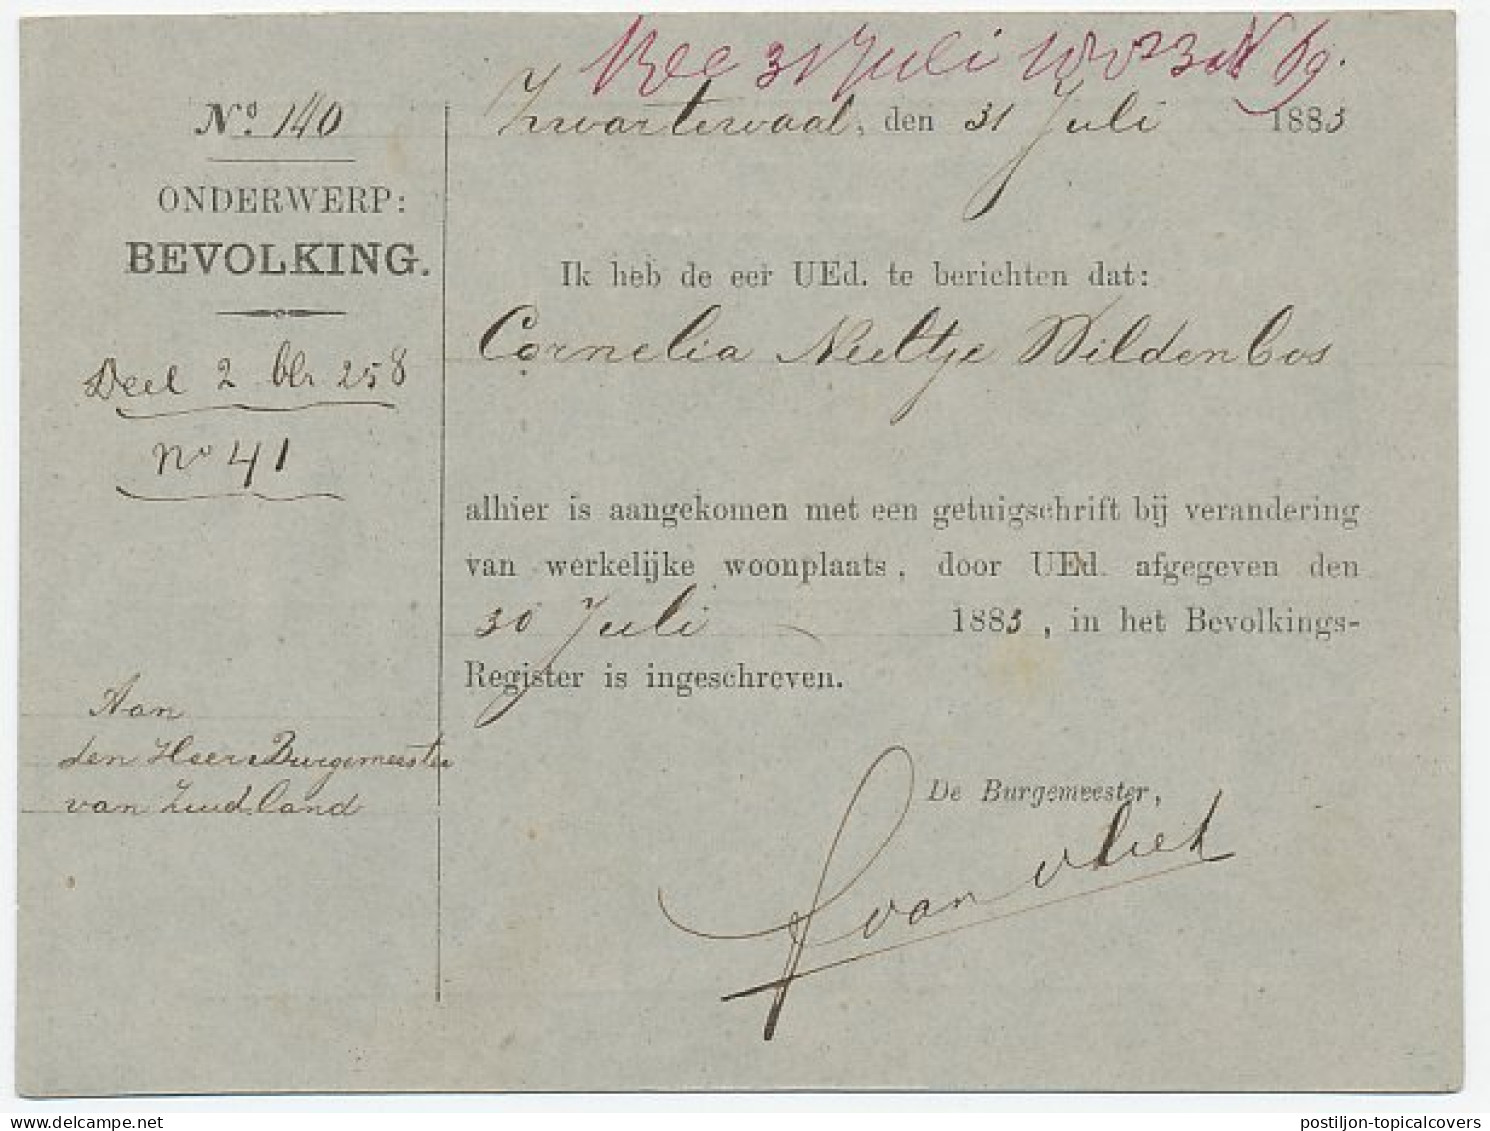 31 Juli 1883 No 69.
Zwartewaal, den 31 Juli 1883
No. 140
ONDERWERP:
BEVOLKING.
Deel 2 blz 258
no 41
Ik heb de eer UEd. te berichten dat:
Cornelia Neeltje Wildenbos
alhier is aangekomen met een getuigschrift bij verandering
van werkelijke woonplaats, door UEd. afgegeven den
30 Juli 1883, in het Bevolkings-
Register is ingeschreven.
Aan
den Heer Burgemeester
van Zuidland
De Burgemeester,
van Vliet
postiljon-topicalcovers
www.delcampe.net